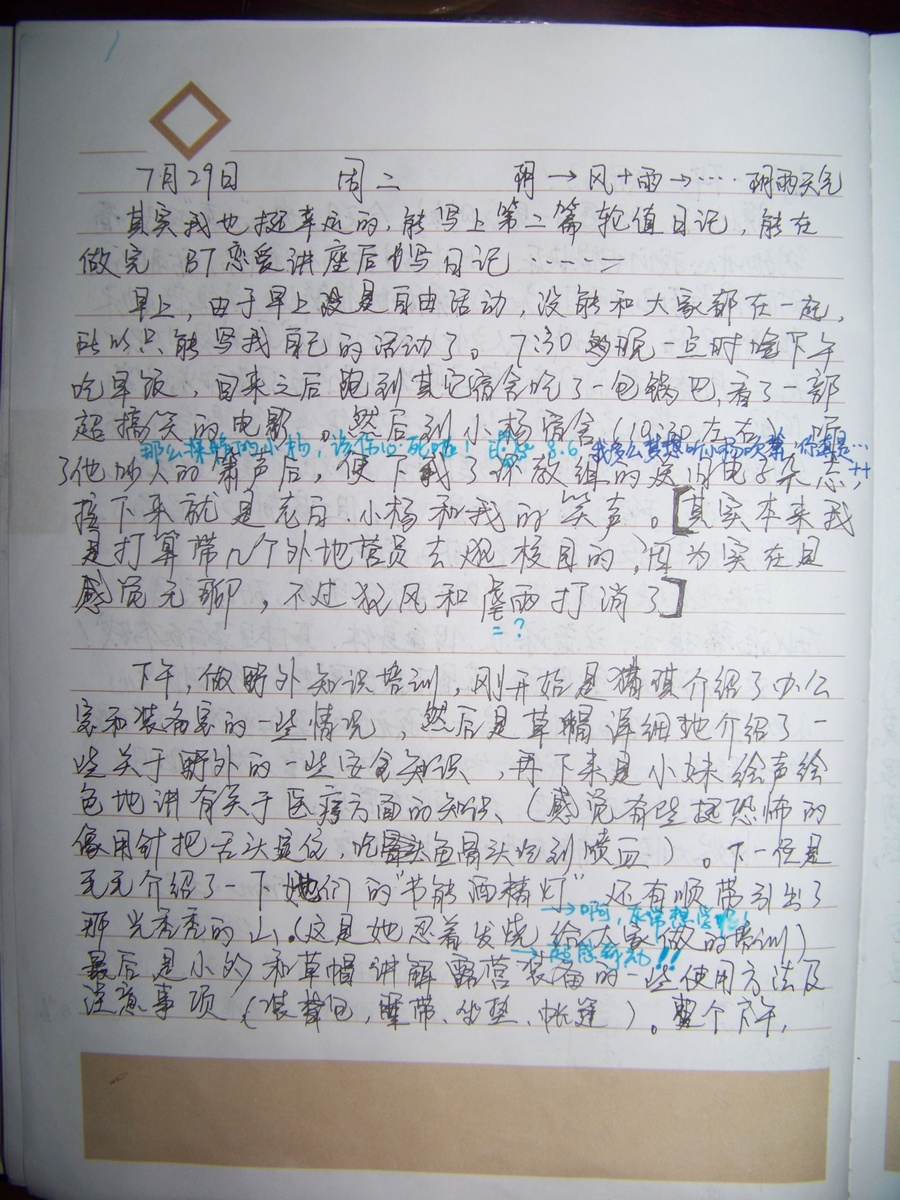 7月29日 周二 阴→风+雨→····阴雨天气
其实我也挺幸运的,能写上第二篇轮值日记,能在
做完 BT恋爱讲座后写日记 ······
早上,由于早上没是自由活动,没能和大家都在一起,
所以只能写我自己的活动了。7:30 一点时 下午
吃早饭,回来之后跑到其它宿舍吃了一包锅巴,看了一部
超搞笑的电影。然后到小杨宿舍(10:30左右),听
那么 的小杨,该伤心死啦! 8.6 我多么 梦想 听小杨吹箫,你真是…
了他吵人的箫声后,便下载了 教组的 电子杂志,
接下来就是老白.小杨和我的笑声。【其实本来我
是打算带几个外地营员去爬校园的,因为实在是
感觉无聊,不过狂风和虐雨打消了】
=?
下午,做野外知识培训,刚开始是 介绍了办公
室和装备室的一些情况,然后是草帽详细地介绍了一
些关于野外的一些安全知识,再下来是小妹绘声绘
色地讲有关于医疗方面的知识、(感觉有些挺恐怖的
像用针把舌头定位,吃 骨头吃到喷血)。下一位是
无无介绍了一下她们的"节能酒精灯" 还有顺带引出了
→啊,
那光秃秃的山.(这是她忍着发烧给大家做的培训)
→超感动!!
最后是小 和草帽讲解露营装备的一些使用方法及
注意事项(装背包,睡带、坐垫、帐篷)。整个下午,